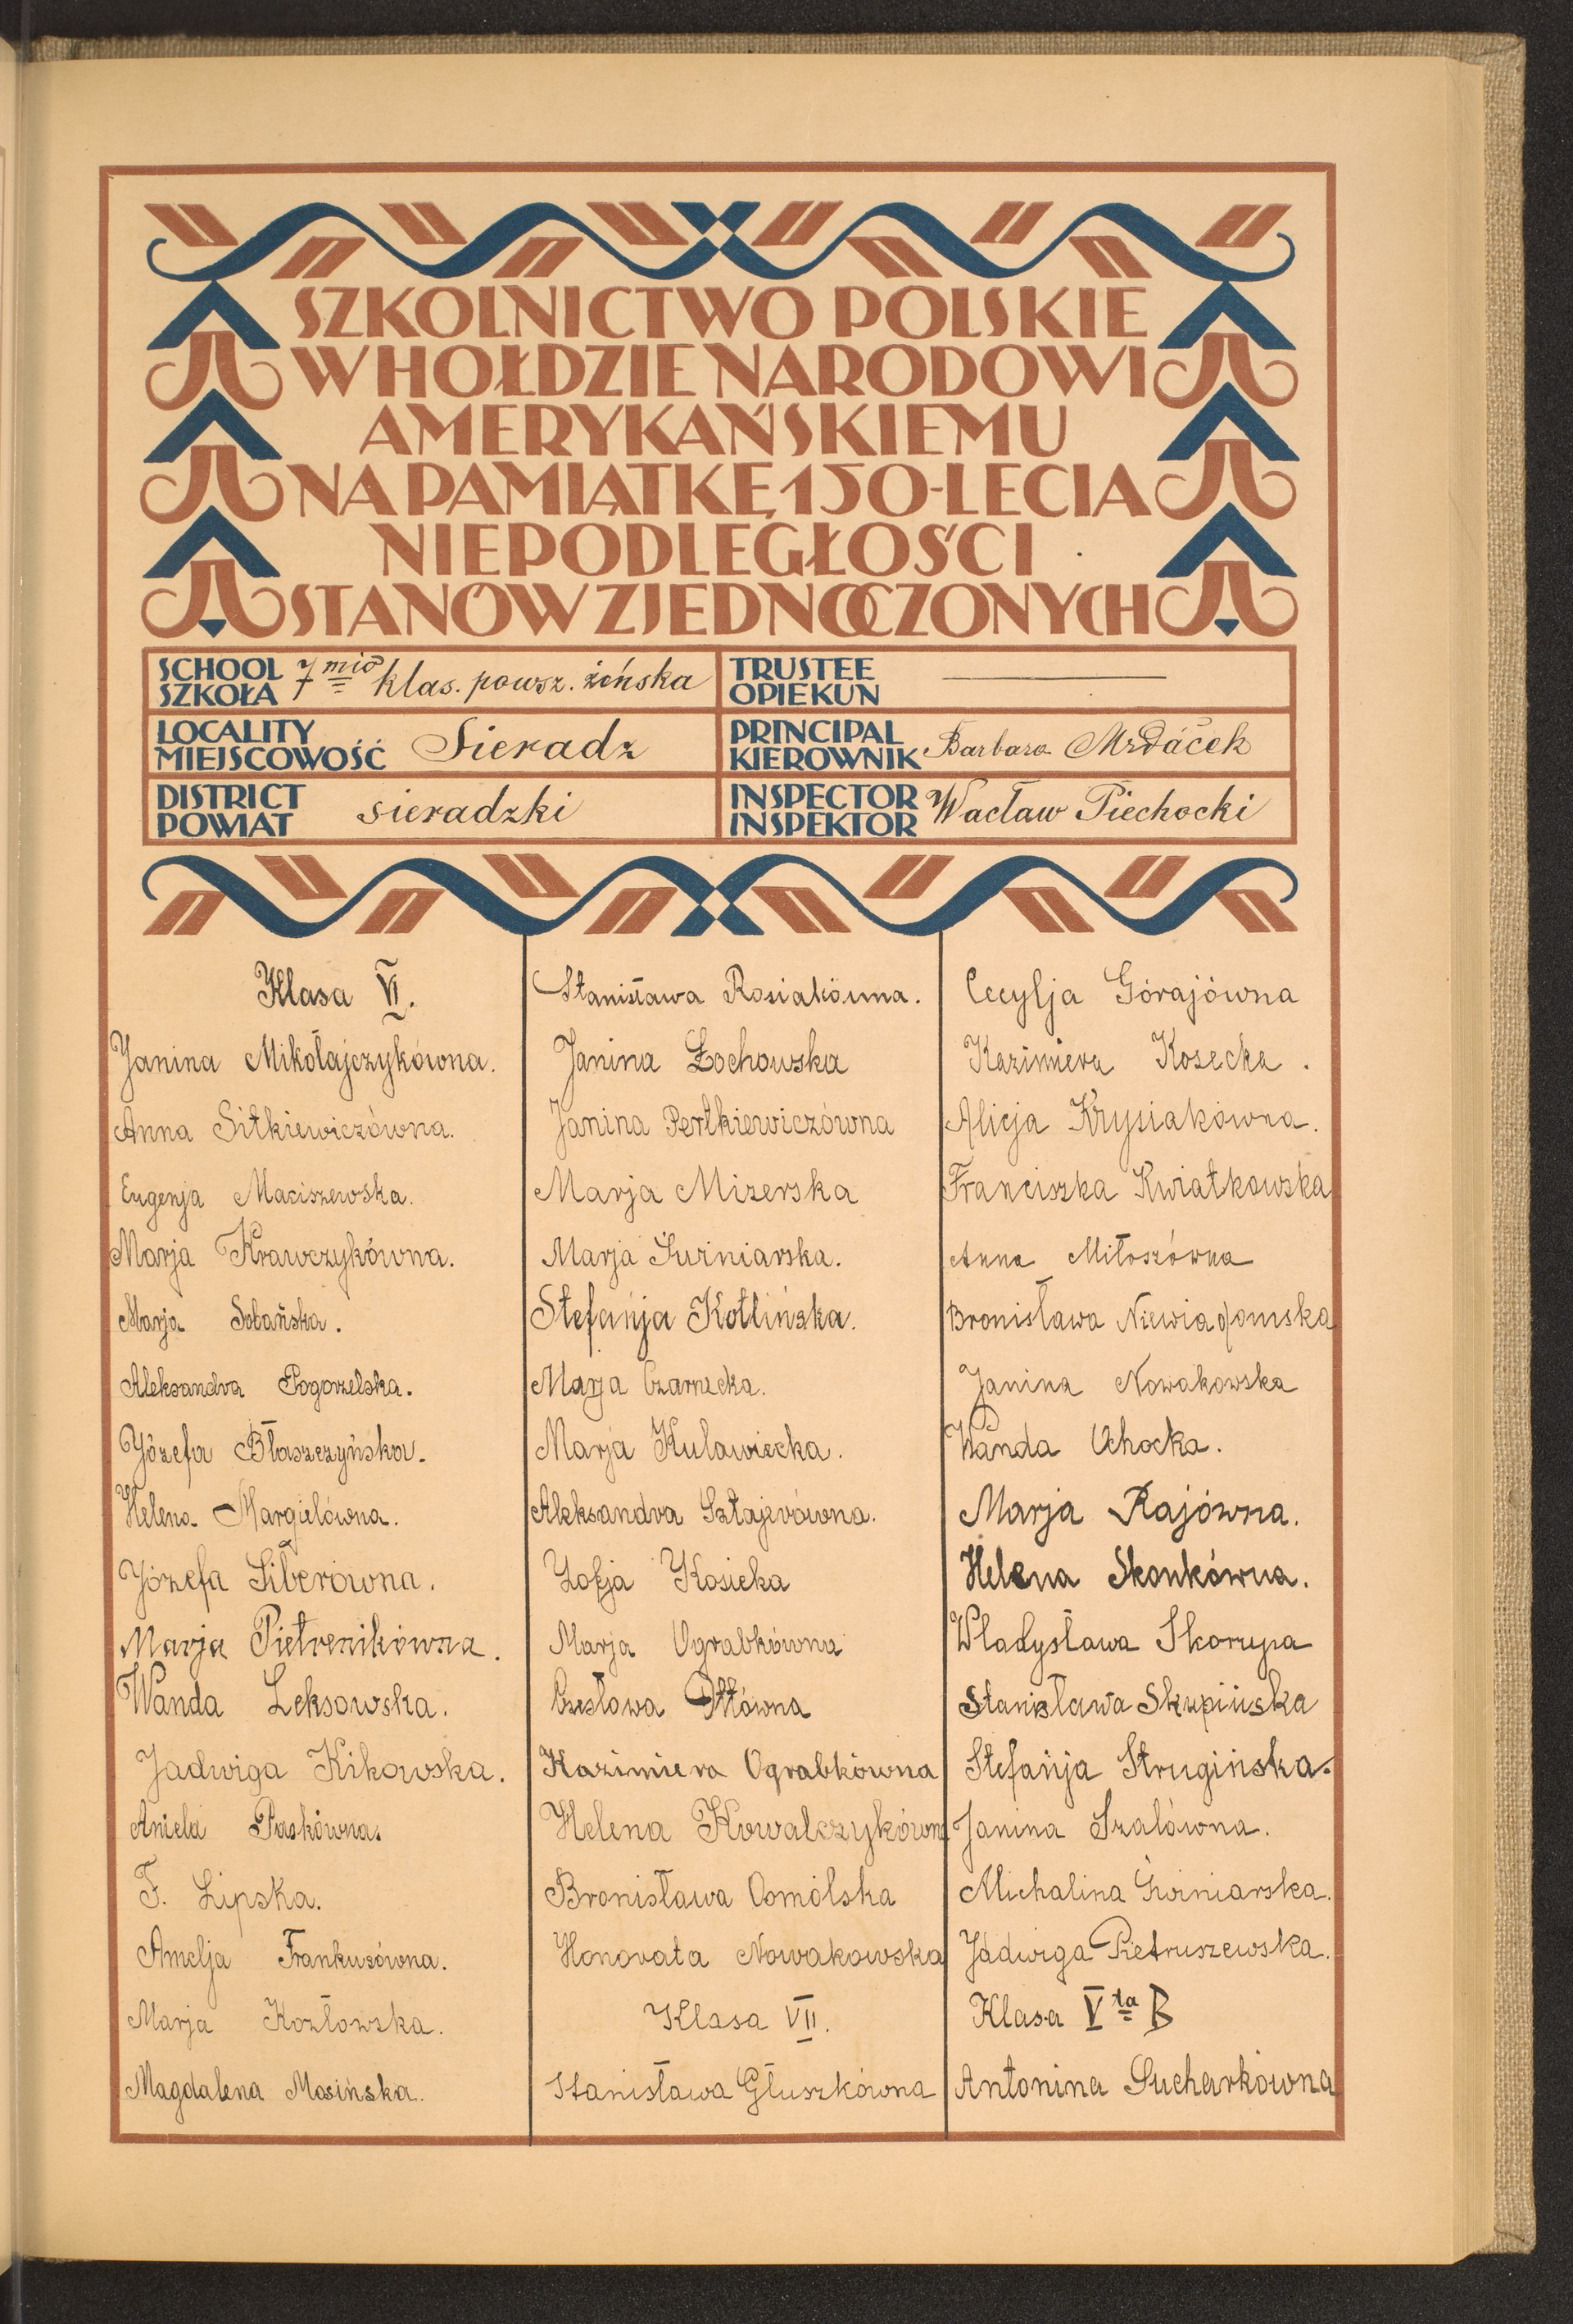 SZKOLNICTWO POLSKIE
W HOŁDZIE NARODOWI
AMERYKAŃSKIEMU
NA PAMIĄTKĘ 150-LECIA
NIEPODLEGŁOŚCI
STANÓW ZJEDNOCZONYCH
SCHOOL
SZKOŁA
7mio klas. powsz. żeńska
TRUSTEE
OPIEKUN
LOCALITY
MIEJSCOWOŚĆ
Sieradz
PRINCIPAL
KIEROWNIK
Barbara Mrdáček
DISTRICT
POWIAT
sieradzki
INSPECTOR
INSPEKTOR
Wacław Piechocki
Klasa VI.
Janina Mikołajczykówna.
Anna Sitkiewiczówna.
Eugenja Maciszewska.
Marja Krawczykówna.
Marja Sobańska.
Aleksandra Pogorzelska.
Józefa Błaszczyńska.
Helena Margielówna.
Józefa Siberówna.
Marja Pietrenikówna.
Wanda Leksowska.
Jadwiga Kikowska.
Aniela Paskówna.
F. Lipska.
Amelja Frankusówna.
Marja Kozłowska.
Magdalena Mosińska.
Stanisława Rosiakówna.
Janina Żochowska
Janina Pertkiewiczówna
Marja Mizerska
Marja Świniarska.
Stefanja Kotlińska.
Marja Czarnecka.
Marja Kulawiecka.
Aleksandra Sztajerówna.
Zofja Kosicka
Marja Ograbkówna
Czesława Ottówna
Kazimiera Ograbkówna
Helena Kowalczykówna
Bronisława Osmólska
Honorata Nowakowska
Klasa VII.
Stanisława Głuszkówna
Cecylja Górajówna
Kazimiera Kosecka.
Alicja Krysiakówna.
Franciszka Kwiatkowska
Anna Miłoszówna
Bronisława Niewiadomska
Janina Nowakowska
Wanda Ochocka.
Marja Rajówna.
Helena Skonkówna.
Władysława Skorupa
Stanisława Skupińska
Stefanja Strugińska.
Janina Szalówna.
Michalina Świniarska.
Jadwiga Pietruszewska.
Klasa Vta B
Antonina Sucharkówna